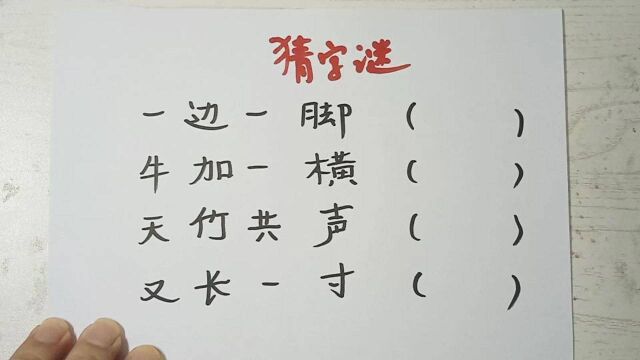 猜字谜
一边一脚 ( )
牛加一横 ( )
天竹共声 ( )
又长一寸 ( )